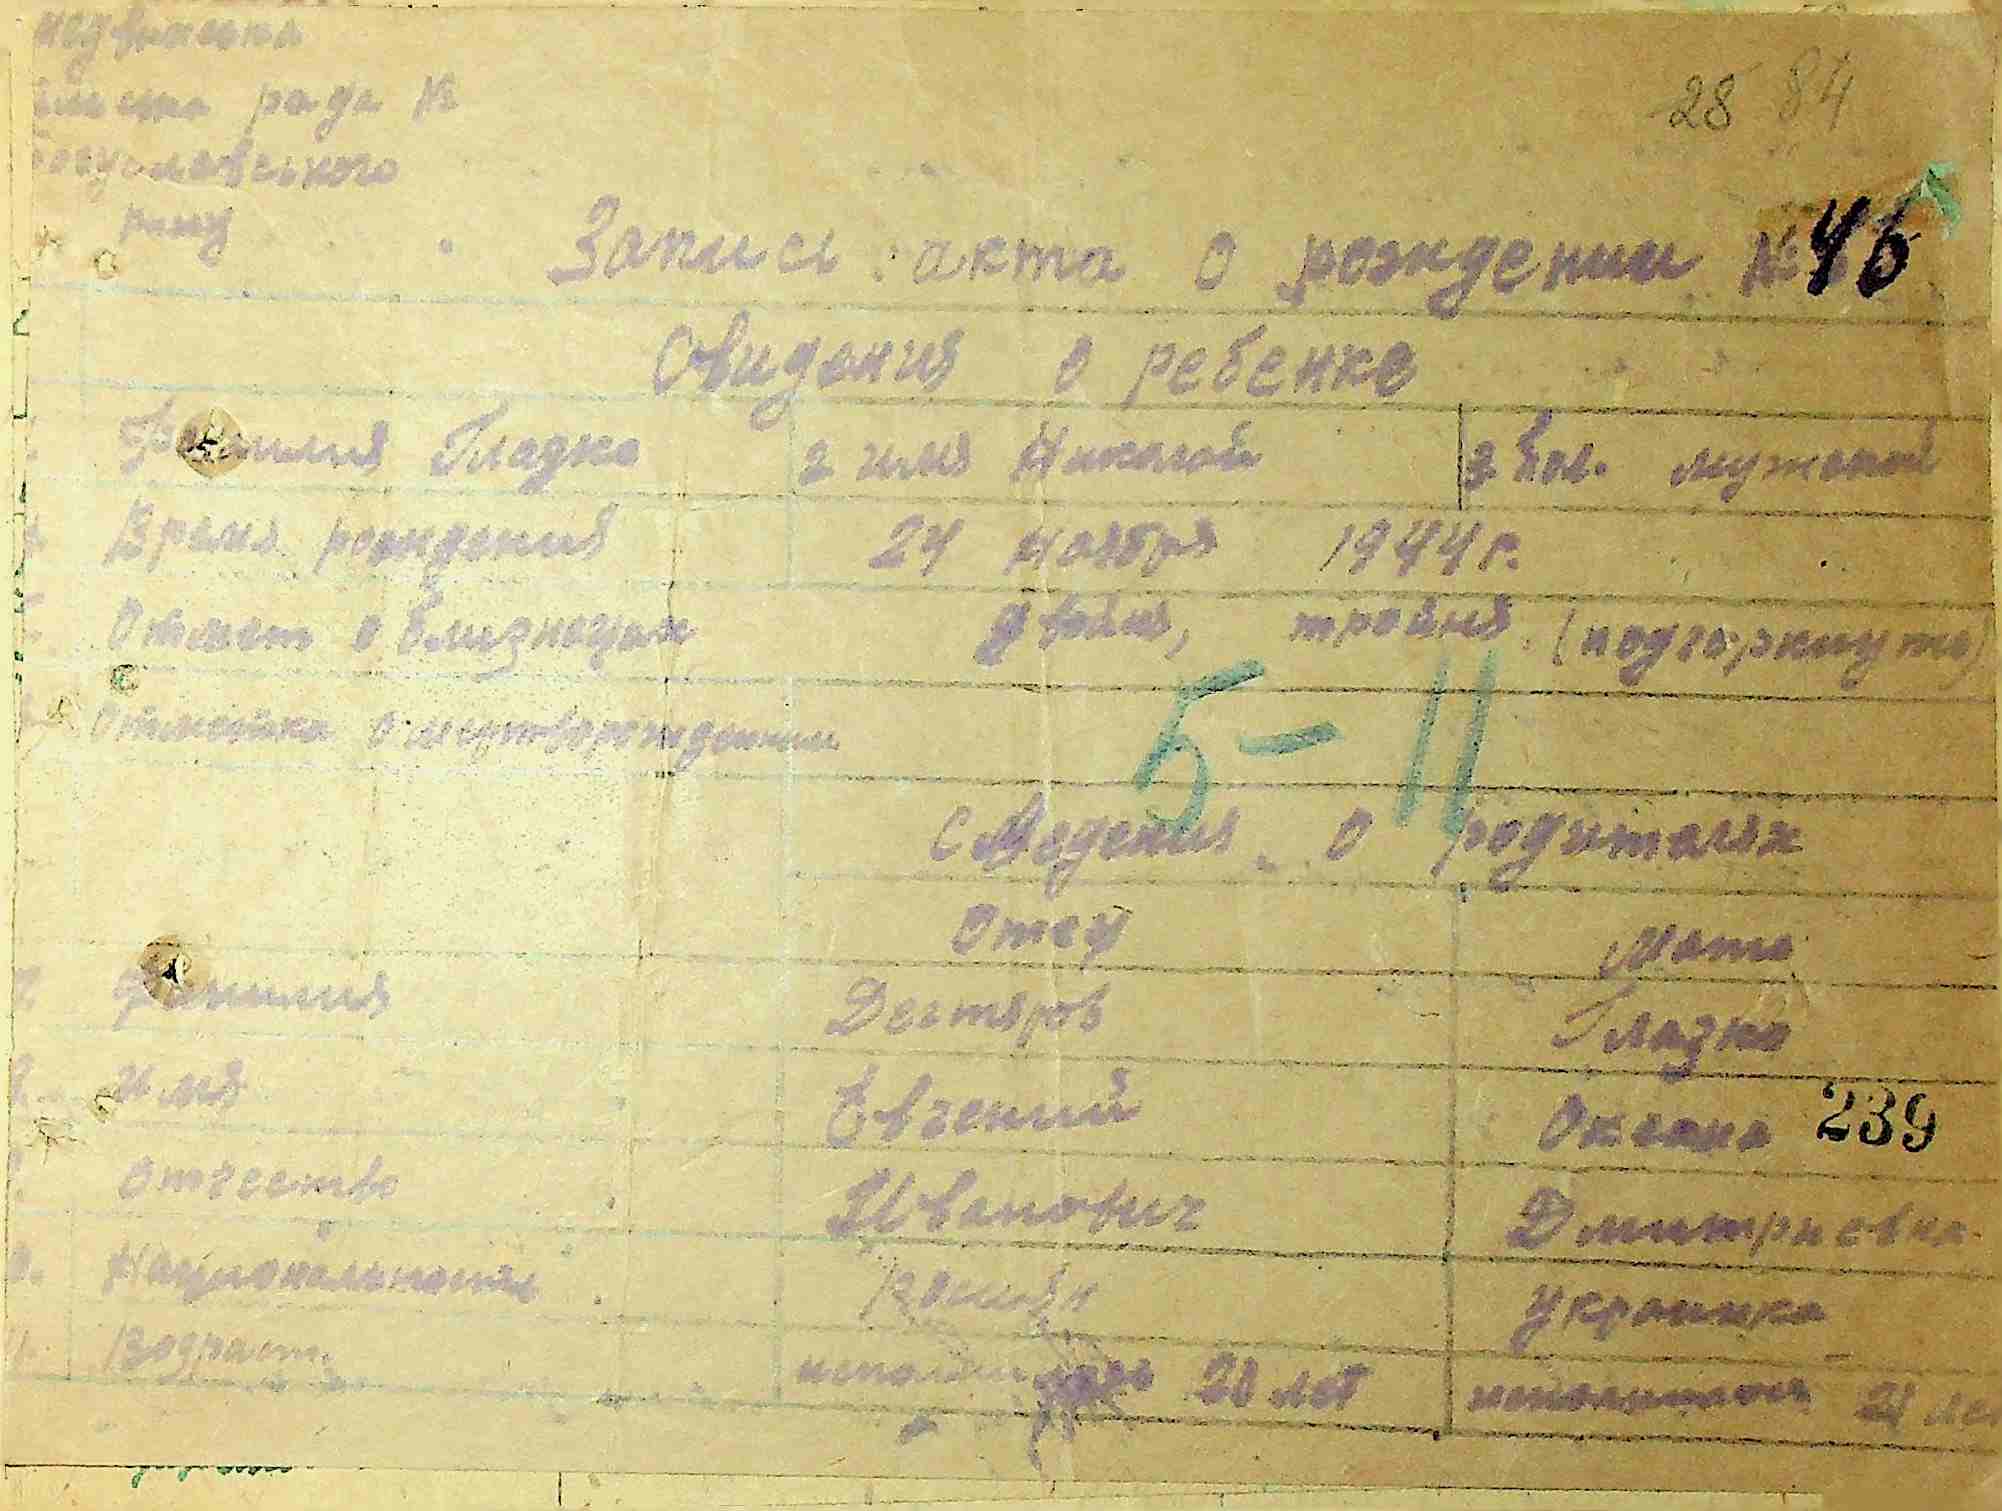 28 84
рада №
Богуславського
р-ну
Запись акта о рождении № 46
Свидения о ребенке
Фамилия Гладко 2 имя Николай 3 Пол. мужской
Время рождения 24 ноября 1944 г.
о близнецах Двойня, тройня (подчеркнуть)
Отметка о мертворождении
5-11
Сведения о родителях
Отец Мать
7 Фамилия Дегтяров Гладко
Имя Евгений Оксана 239
Отчество Иванович Дмитриевна
Национальность украинка
Возраст исполнилось 20 лет исполнилось 21 лет